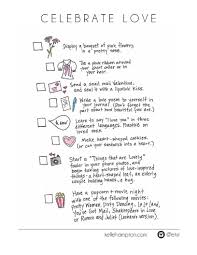 CELEBRATE LOVE
Display a bouquet of pink flowers
in a pretty vase.
Tie a pink ribbon around
your
your hair.
Send a snail mail Valentine,
and seal it with a lipstick kiss.
Write a love poem to yourself in
your journal. (Don't forget the
part about how beautiful you are.)
Learn to say "I love you" in three
different languages. Practice on
loved ones.
Make heart-shaped cookies.
(or cut your sandwich into a heart.)
Start a "Things that are Lovely"
folder in your phone photos, and
begin taking pictures of love-inspired
things: a heart-shaped leaf, an elderly
couple holding hands, a hug.
Have a popcorn + movie night
with one of the following movies:
Pretty Woman, Dirty Dancing,
You've Got Mail, Shakespeare in Love
or Romeo and Juliet (Leonardo version).
kellehampton.com